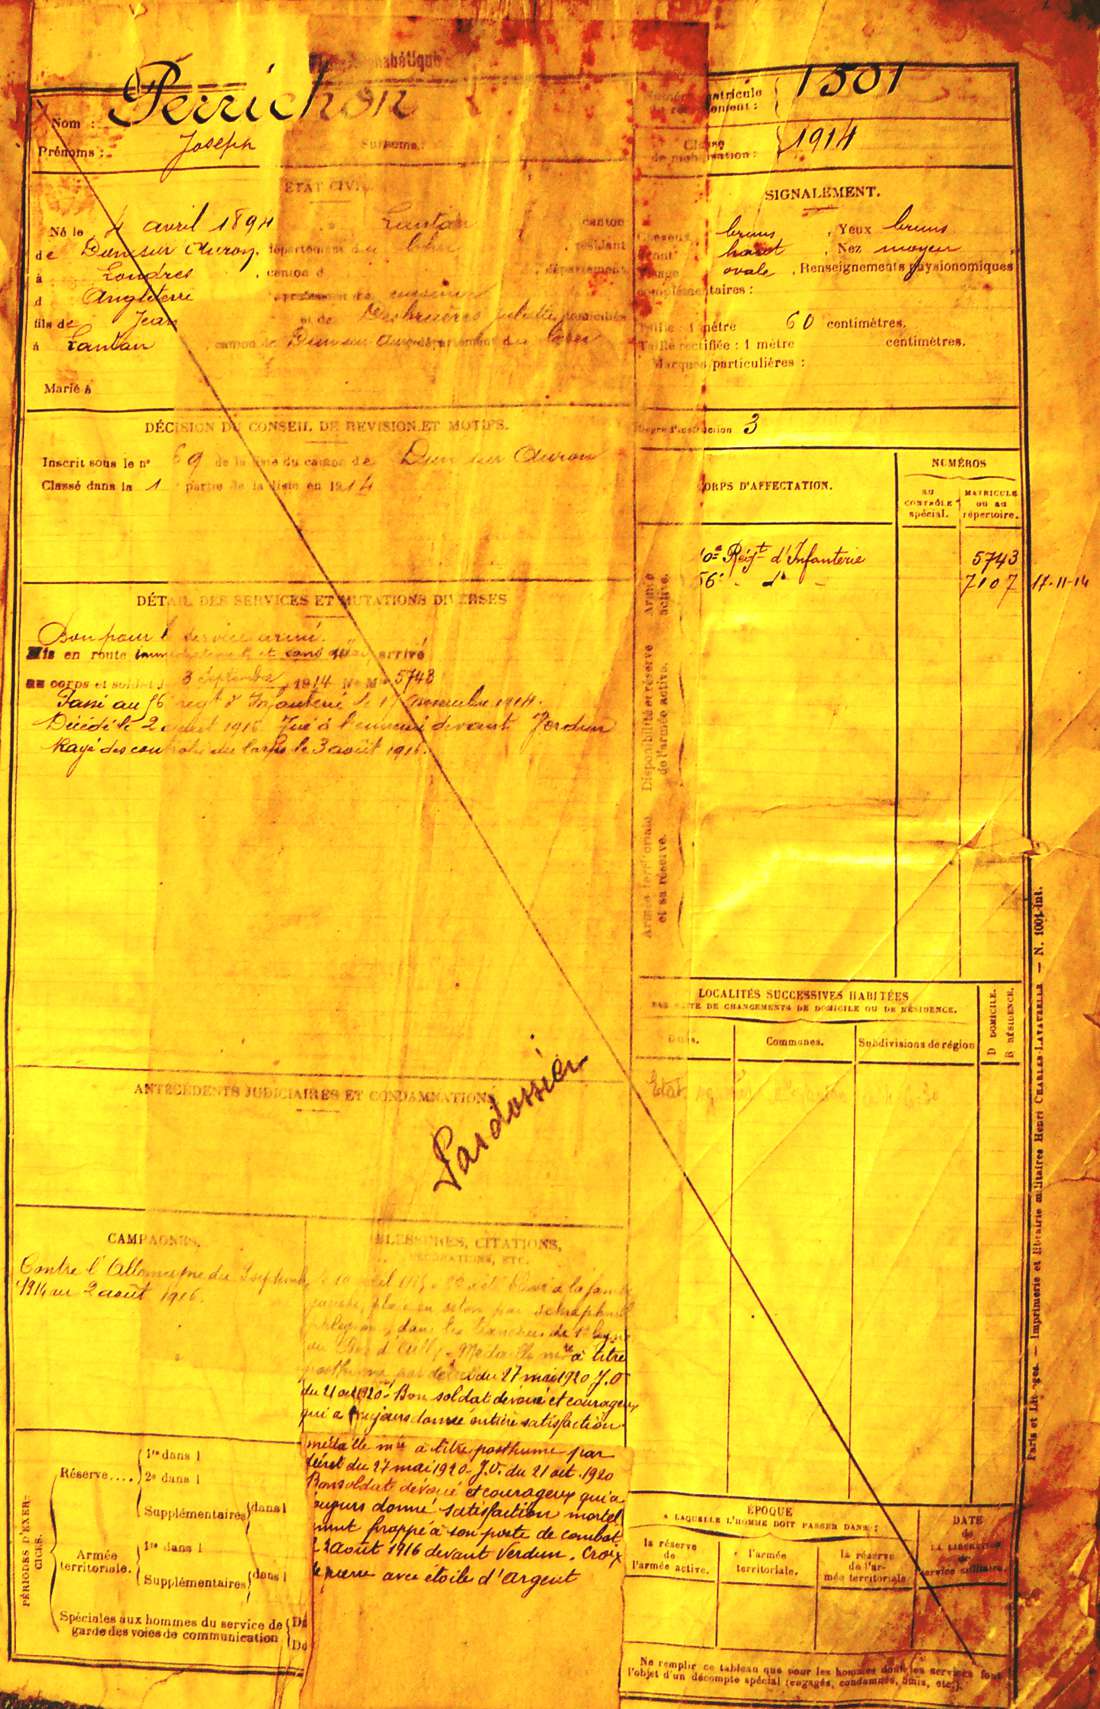 Perrichon
Nom :
Prénoms : Joseph Surnoms :
Numéro matricule
du recrutement : 1501
Classe
de mobilisation : 1914
ÉTAT CIVIL.
Né le 4 avril 1894, à Lantan, canton
de Dun sur Auron, département du Cher, résidant
à Londres, canton d , département
d Angleterre, profession de cuisinier
fils de Jean et de Desbruères Juliette domiciliés
à Lantan, canton de Dun sur Auron département du Cher
Marié à
SIGNALEMENT.
Cheveux bruns, Yeux bruns
Front haut, Nez moyen
Visage ovale. Renseignements physionomiques
complémentaires :
Taille : 1 mètre 60 centimètres.
Taille rectifiée : 1 mètre centimètres.
Marques particulières :
Degré d'instruction 3
DÉCISION DU CONSEIL DE REVISION ET MOTIFS.
Inscrit sous le n° 69 de la liste du canton de Dun sur Auron
Classé dans la 1 partie de la liste en 1914
DÉTAIL DES SERVICES ET MUTATIONS DIVERSES
Bon pour le service armé.
Mis en route immédiatement et sans délai, arrivé
au corps et soldat le 3 Septembre 1914 No Mle 5743
Passé au 56 regt d'Infanterie le 17 novembre 1914.
Décédé le 2 août 1916 Tué à l'ennemi devant Verdun
Rayé des contrôles du Corps le 3 août 1916.
CORPS D'AFFECTATION.
NUMÉROS
AU
CONTRÔLE
spécial.
MATRICULE
OU AU
répertoire.
10e Régt d'Infanterie 5743
56e - do - 7107 17-11-14
Armée
active.
Disponibilité et réserve
de l'armée active.
Armée territoriale
et sa réserve.
LOCALITÉS SUCCESSIVES HABITÉES
PAR SUITE DE CHANGEMENTS DE DOMICILE OU DE RÉSIDENCE.
Dates.
Communes.
Subdivisions de région
D DOMICILE.
R RÉSIDENCE.
ANTÉCÉDENTS JUDICIAIRES ET CONDAMNATIONS
Pas dossier
CAMPAGNES.
Contre l'Allemagne du 3 septembre
1914 au 2 août 1916.
BLESSURES, CITATIONS,
DÉCORATIONS, ETC.
blessé à la jambe
gauche, par schrapnell
dans les tranchées de 1e ligne
au Bois d'Ailly. Médaille mre à titre
posthume par décret du 27 mai 1920 J.O
du 21 oct 1920. Bon soldat dévoué et courageux
qui a toujours donné entière satisfaction
médaille mre à titre posthume par
décret du 27 mai 1920. J.O. du 21 oct. 1920
Bon soldat dévoué et courageux qui a
toujours donné satisfaction mortel
ment frappé à son poste de combat
le 2 août 1916 devant Verdun. Croix
de guerre avec étoile d'argent
PÉRIODES D'EXER-
CICES.
Réserve....
1re dans l
2e dans l
Supplémentaires dans l
Armée
territoriale.
1re dans l
Supplémentaires dans l
Spéciales aux hommes du service de
garde des voies de communication
Du
Du
ÉPOQUE
A LAQUELLE L'HOMME DOIT PASSER DANS :
DATE
de
LA LIBÉRATION
du
service militaire.
la réserve
de
l'armée active.
l'armée
territoriale.
la réserve
de l'ar-
mée territoriale
Ne remplir ce tableau que pour les hommes dont les services font
l'objet d'un décompte spécial (engagés, condamnés, omis, etc.).
Paris et Limoges. — Imprimerie et librairie militaires Henri CHARLES-LAVAUZELLE — N. 1001 Int.